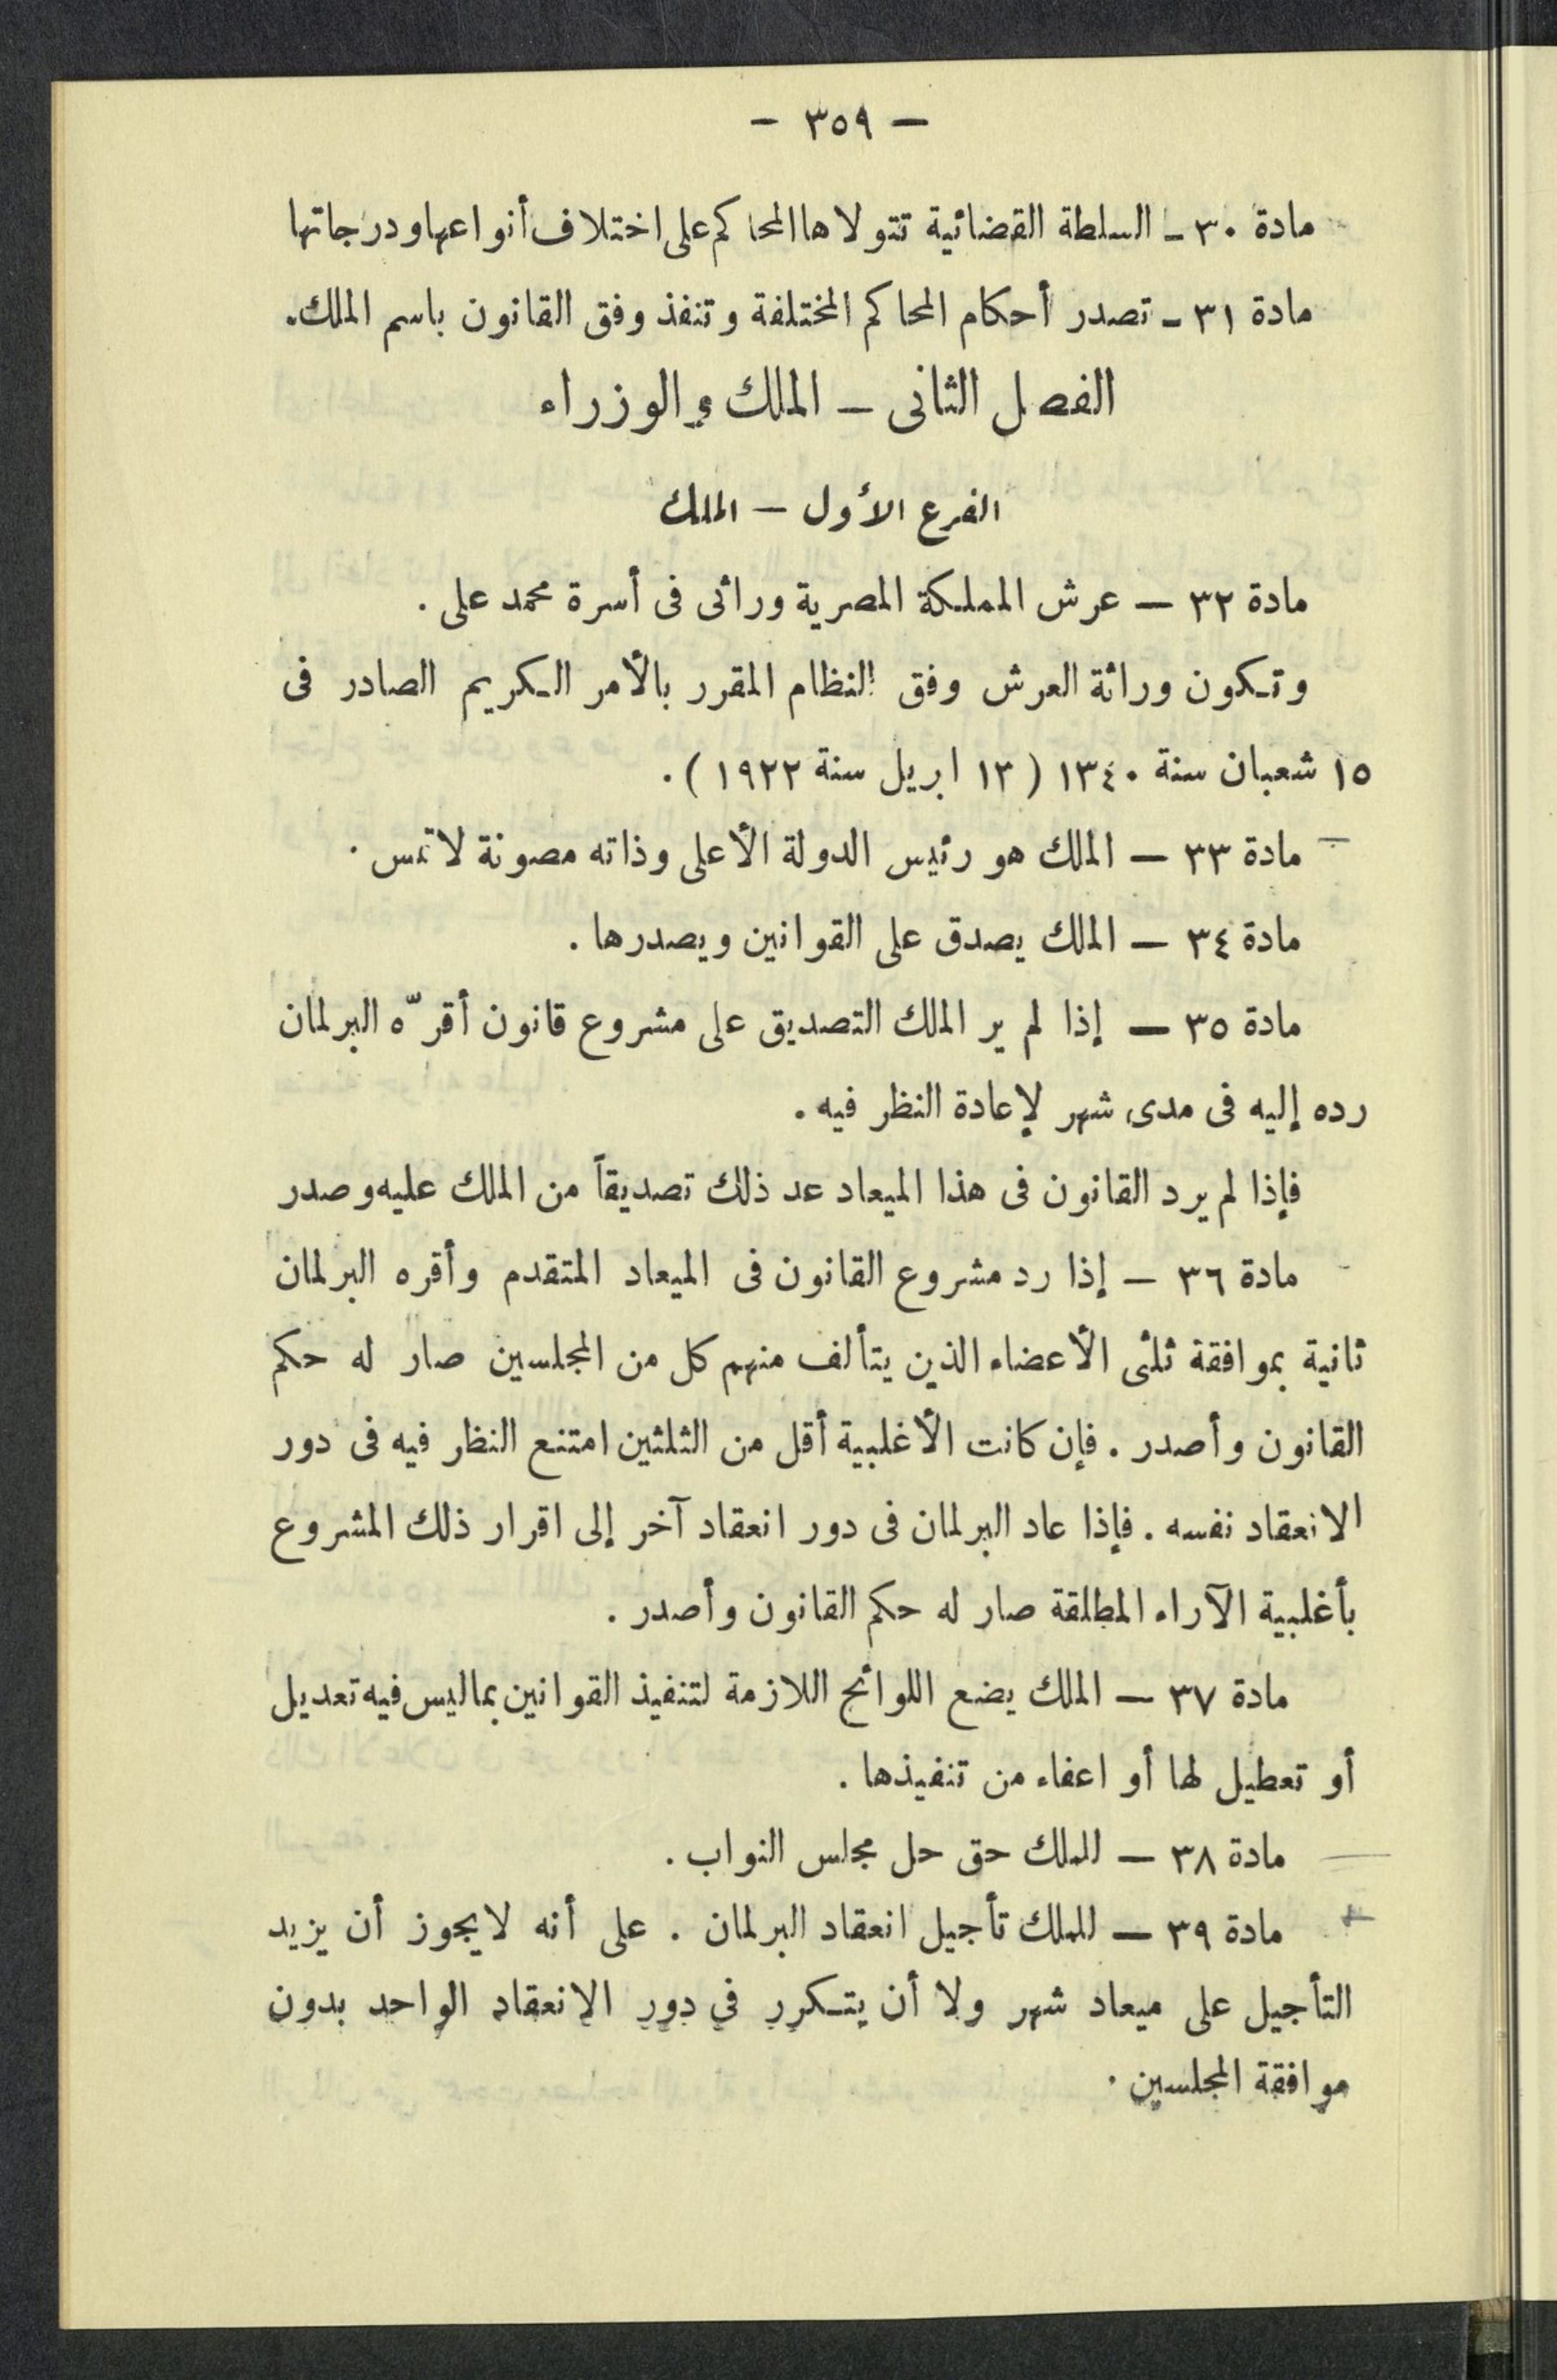 — ٣٥٩ —
مادة ٣٠ ـ السلطة القضائية تتولاها المحاكم على اختلاف أنواعها ودرجاتها
مادة ٣١ ـ تصدر أحكام المحاكم المختلفة وتنفذ وفق القانون باسم الملك.
الفصل الثانى — الملك والوزراء
الفرع الأول — الملك
مادة ٣٢ — عرش المملكة المصرية وراثى فى أسرة محمد على .
وتكون وراثة العرش وفق النظام المقرر بالأمر الكريم الصادر فى
١٥ شعبان سنة ١٣٤٠ ( ١٣ ابريل سنة ١٩٢٢ ) .
مادة ٣٣ — الملك هو رئيس الدولة الأعلى وذاته مصونة لا تمس .
مادة ٣٤ — الملك يصدق على القوانين ويصدرها .
مادة ٣٥ — إذا لم ير الملك التصديق على مشروع قانون أقرّه البرلمان
رده إليه فى مدى شهر لإعادة النظر فيه .
فإذا لم يرد القانون فى هذا الميعاد عد ذلك تصديقاً من الملك عليه وصدر
مادة ٣٦ — إذا رد مشروع القانون فى الميعاد المتقدم وأقره البرلمان
ثانية بموافقة ثلثى الأعضاء الذين يتألف منهم كل من المجلسين صار له حكم
القانون وأصدر . فإن كانت الأغلبية أقل من الثلثين امتنع النظر فيه فى دور
الانعقاد نفسه . فإذا عاد البرلمان فى دور انعقاد آخر إلى اقرار ذلك المشروع
بأغلبية الآراء المطلقة صار له حكم القانون وأصدر .
مادة ٣٧ — الملك يضع اللوائح اللازمة لتنفيذ القوانين بما ليس فيه تعديل
أو تعطيل لها أو اعفاء من تنفيذها .
مادة ٣٨ — للملك حق حل مجلس النواب .
مادة ٣٩ — للملك تأجيل انعقاد البرلمان . على أنه لا يجوز أن يزيد
التأجيل على ميعاد شهر ولا أن يتكرر في دور الانعقاد الواحد بدون
موافقة المجلسين .